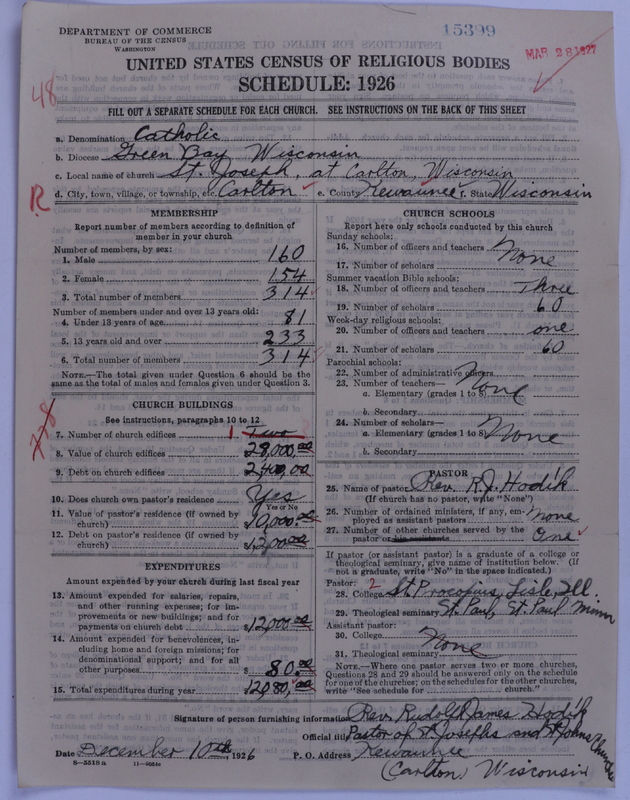 DEPARTMENT OF COMMERCE
BUREAU OF THE CENSUS
WASHINGTON
15399
MAR 28 1927
UNITED STATES CENSUS OF RELIGIOUS BODIES
SCHEDULE: 1926
48
FILL OUT A SEPARATE SCHEDULE FOR EACH CHURCH. SEE INSTRUCTIONS ON THE BACK OF THIS SHEET
a. Denomination Catholic
b. Diocese Green Bay Wisconsin
c. Local name of church St. Joseph, at Carlton, Wisconsin
R
d. City, town, village, or township, etc. Carlton e. County Kewaunee f. State Wisconsin
MEMBERSHIP
Report number of members according to definition of
member in your church
Number of members, by sex:
1. Male 160
2. Female 154
3. Total number of members 314
Number of members under and over 13 years old:
4. Under 13 years of age 81
5. 13 years old and over 233
6. Total number of members 314
NOTE.—The total given under Question 6 should be the
same as the total of males and females given under Question 3.
CHURCH BUILDINGS
See instructions, paragraphs 10 to 12
7. Number of church edifices 1 Two
8. Value of church edifices $ 28,000,00
9. Debt on church edifices 2400,00
10. Does church own pastor's residence Yes
Yes or No
11. Value of pastor's residence (if owned by
church) $ 10,000.00
12. Debt on pastor's residence (if owned by
church) 1,200.00
EXPENDITURES
Amount expended by your church during last fiscal year
13. Amount expended for salaries, repairs,
and other running expenses; for im-
provements or new buildings; and for
payments on church debt $ 12,000.00
14. Amount expended for benevolences, in-
cluding home and foreign missions; for
denominational support; and for all
other purposes $ 80.00
15. Total expenditures during year 12080,00
CHURCH SCHOOLS
Report here only schools conducted by this church
Sunday schools:
16. Number of officers and teachers None
17. Number of scholars
Summer vacation Bible schools:
18. Number of officers and teachers Three
19. Number of scholars 60
Week-day religious schools:
20. Number of officers and teachers one
21. Number of scholars 60
Parochial schools:
22. Number of administrative officers
23. Number of teachers— None
a. Elementary (grades 1 to 8)
b. Secondary
24. Number of scholars—
a. Elementary (grades 1 to 8) None
b. Secondary
PASTOR
25. Name of pastor Rev. R.J. Hodik
(If church has no pastor, write "None")
26. Number of ordained ministers, if any, em-
ployed as assistant pastors none
27. Number of other churches served by the
pastor or his assistants One
If pastor (or assistant pastor) is a graduate of a college or
theological seminary, give name of institution below. (If
not a graduate, write "No" in the space indicated.)
Pastor: 2
28. College St. Procopius, Lisle, Ill.
29. Theological seminary St. Paul, St. Paul Minn
Assistant pastor:
30. College None
31. Theological seminary
NOTE.—Where one pastor serves two or more churches,
Questions 28 and 29 should be answered only on the schedule
for one of the churches; on the schedules for the other churches,
write "See schedule for church."
Signature of person furnishing information Rev. Rudolph James Hodik
Official title Pastor of St. Josephs and St Johns Church
Date December 10th, 1926 P. O. Address Kewaunee
8—5518 a
(Carlton) Wisconsin